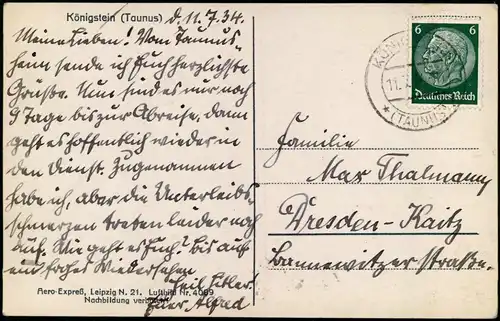 Königstein (Taunus) d. 11.7.34.
Meine Lieben! Vom Taunus-
heim sende ich Euch herzlichste
Grüße. Nun sind es nur noch
9 Tage bis zur Abreise, dann
geht es hoffentlich wieder in
den Dienst. Zugenommen
habe ich, aber die Unterleibs-
schmerzen treten leider noch
auf. Wie geht es Euch? Bis auf
ein frohes Wiedersehen
Heil Hitler!
Euer Alfred
Aero-Expreß, Leipzig N. 21. Luftbild Nr. 4089
Nachbildung verboten
6 6
Deutsches Reich
KÖNIG
11.7
(TAUNUS)
Familie
Max Thalmann
Dresden-Kaitz
Bannewitzer Straße.